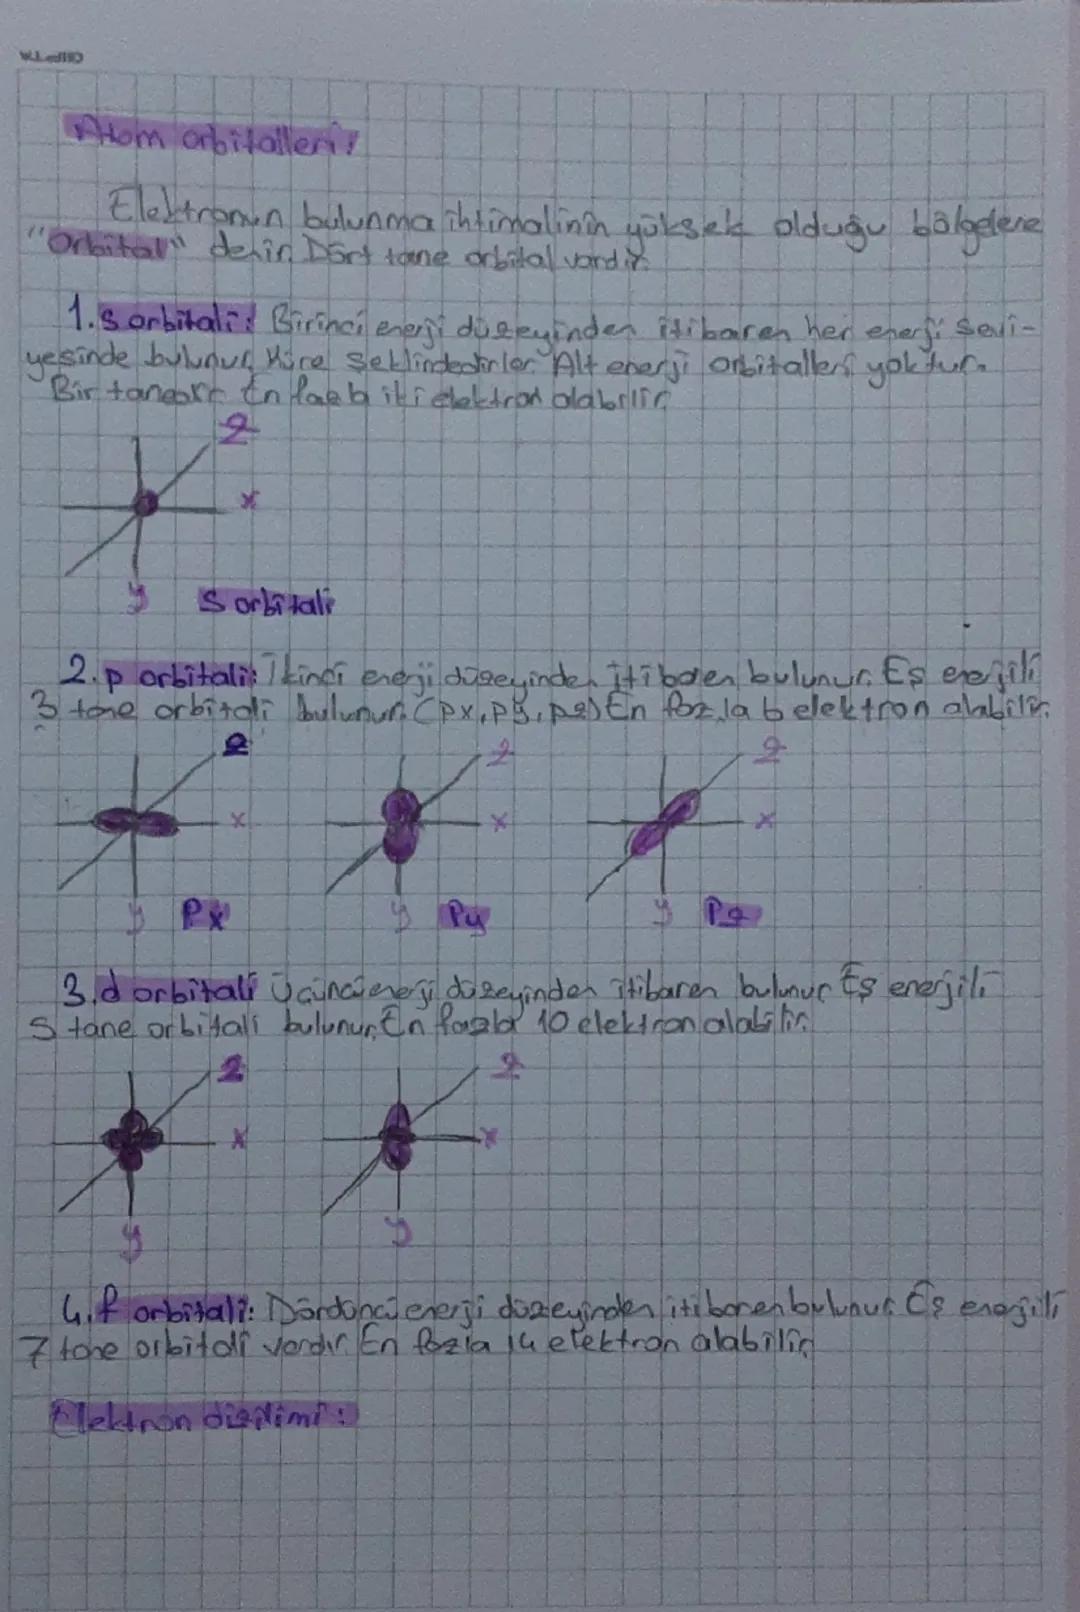 Atom orbitalleri:
Elektronun bulunma ihtimalinin yüksek olduğu bölgelere
"Orbital" denir. Dört tane orbital vardır.
1. s orbitali: Birinci enerji düzeyinden itibaren her enerji sevi-
yesinde bulunur. Küre şeklindedirler. Alt enerji orbitalleri yoktur.
Bir tanedir. En fazla iki elektron alabilir.
z
x
y
S orbitali
2. p orbitali: İkinci enerji düzeyinden itibaren bulunur. Eş enerjili
3 tane orbitali bulunur. (px, py, pz) En fazla 6 elektron alabilir.
z z z
x x x
y Px y Py y Pz
3. d orbitali Üçüncü enerji düzeyinden itibaren bulunur. Eş enerjili
5 tane orbitali bulunur. En fazla 10 elektron alabilir.
z z
x x
y y
4. f orbitali: Dördüncü enerji düzeyinden itibaren bulunur. Eş enerjili
7 tane orbitali vardır. En fazla 14 elektron alabilir.
Elektron dizilimi: